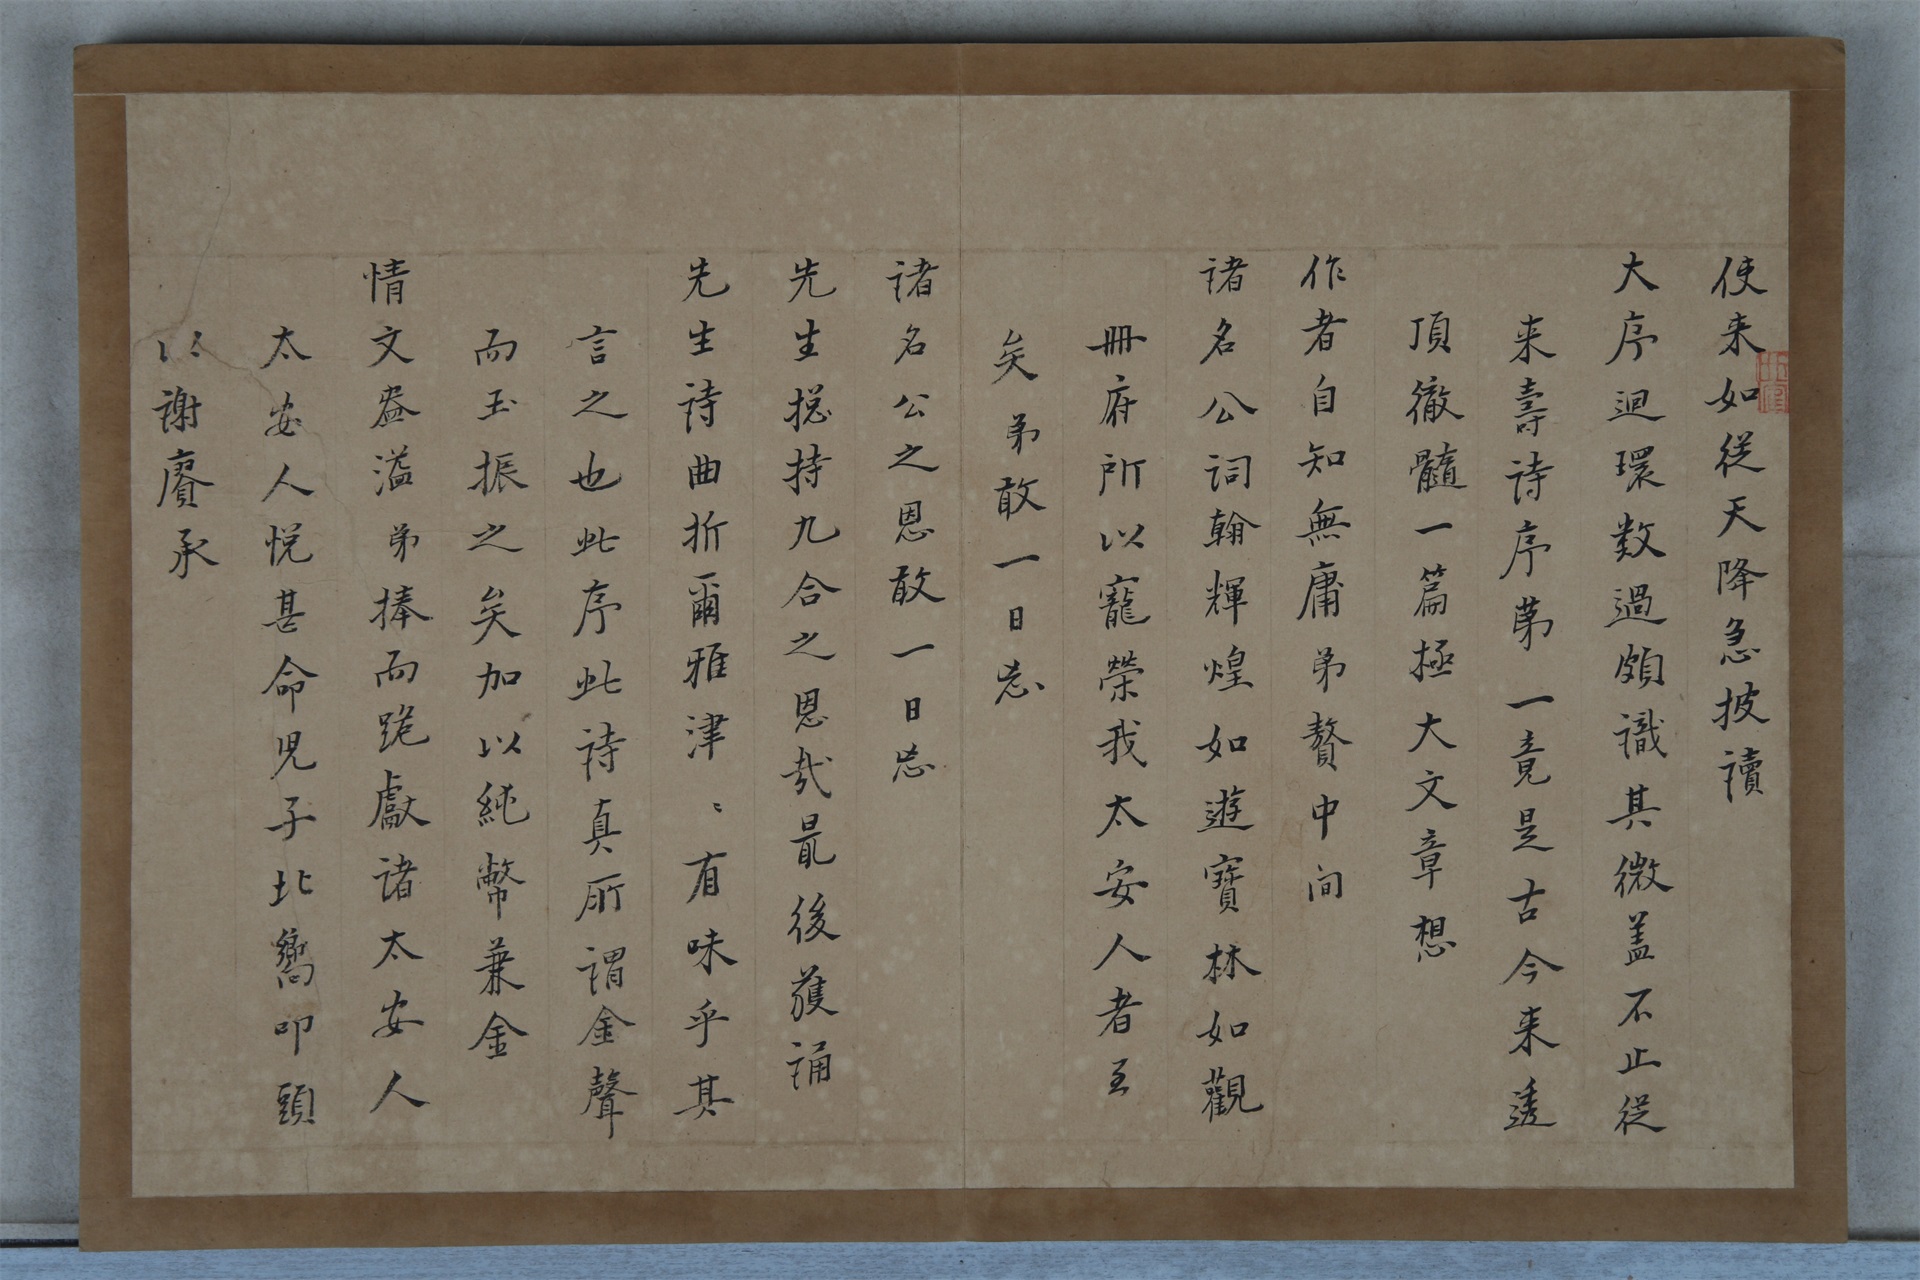 使来如從天降急披讀
大序迴環数過頗識其微盖不止從
来壽詩序苐一竟是古今来透
頂徹髓一篇極大文章想
作者自知無庸弟贅中间
諸名公詞翰輝煌如遊寳林如觀
冊府所以寵榮我太安人者至
矣弟敢一日忘
諸名公之恩敢一日忘
先生捴持九合之恩哉最後䕶誦
先生詩曲折爾雅津〻有味乎其
言之也此序此詩真所謂金聲
而玉振之矣加以純幣兼金
情文盎溢弟捧而跪獻諸太安人
太安人悦甚命児子北嚮叩頭
以謝賡承